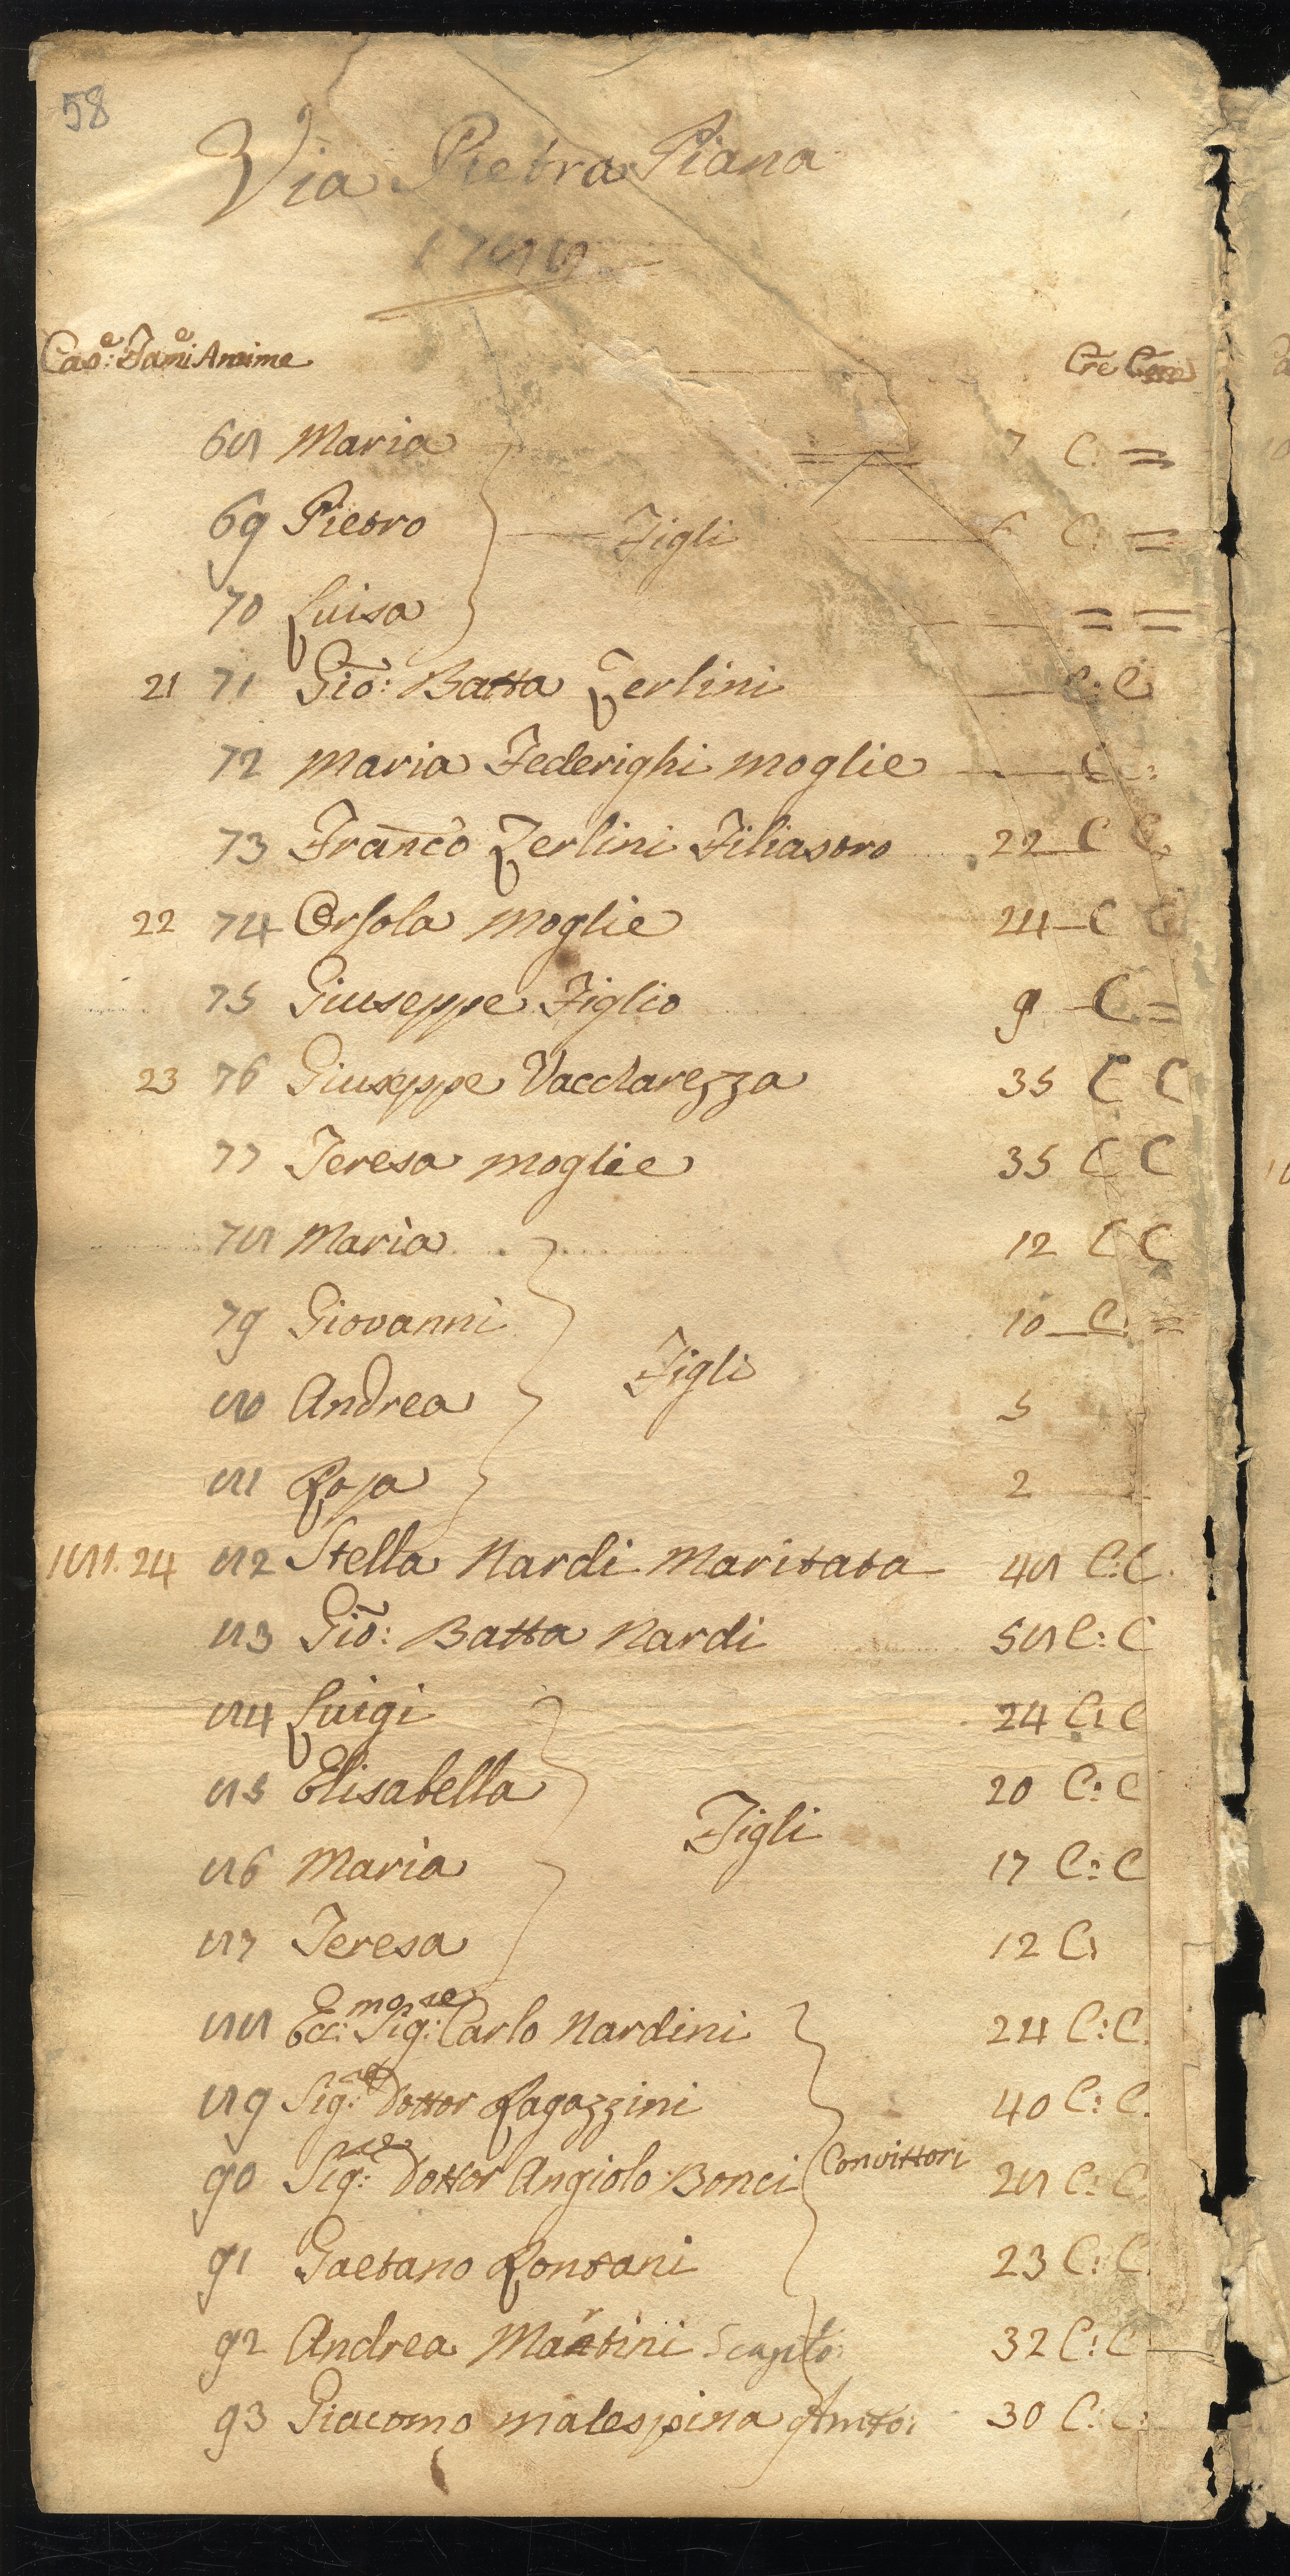 58
Via Pietra Piana
1788
Cas:e Fam:e Anime Cre Com
68 Maria 7 C: =
69 Pietro Figli 6 C: =
70 Luisa = =
21 71 Gio: Batta Zerlini C: C
72 Maria Federighi moglie C C:
73 Franco Zerlini Filiastro 22 C C
22 74 Orsola moglie 24 C C
75 Giuseppe Figlio 9 C =
23 76 Giuseppe Vaccharezza 35 C C
77 Teresa moglie 35 C C
78 Maria 12 C C
79 Giovanni 10 C. =
Figli
80 Andrea 5
81 Rosa 2
181. 24 82 Stella Nardi Maritata 48 C: C.
83 Gio: Batta Nardi 58 C: C
84 Luigi 24 C: C
85 Elisabella 20 C: C
Figli
86 Maria 17 C: C
87 Teresa 12 C:
88 Ecc:mo Sig:re Carlo Nardini 24 C: C.
89 Sig:re Dottor Ragazzini 40 C: C.
90 Sig:re Dottor Angiolo Bonci Convittori 28 C: C
91 Gaetano Rontani 23 C: C.
92 Andrea Martini Scaplo: 32 C: C
93 Giacomo malespina 30 C: C: